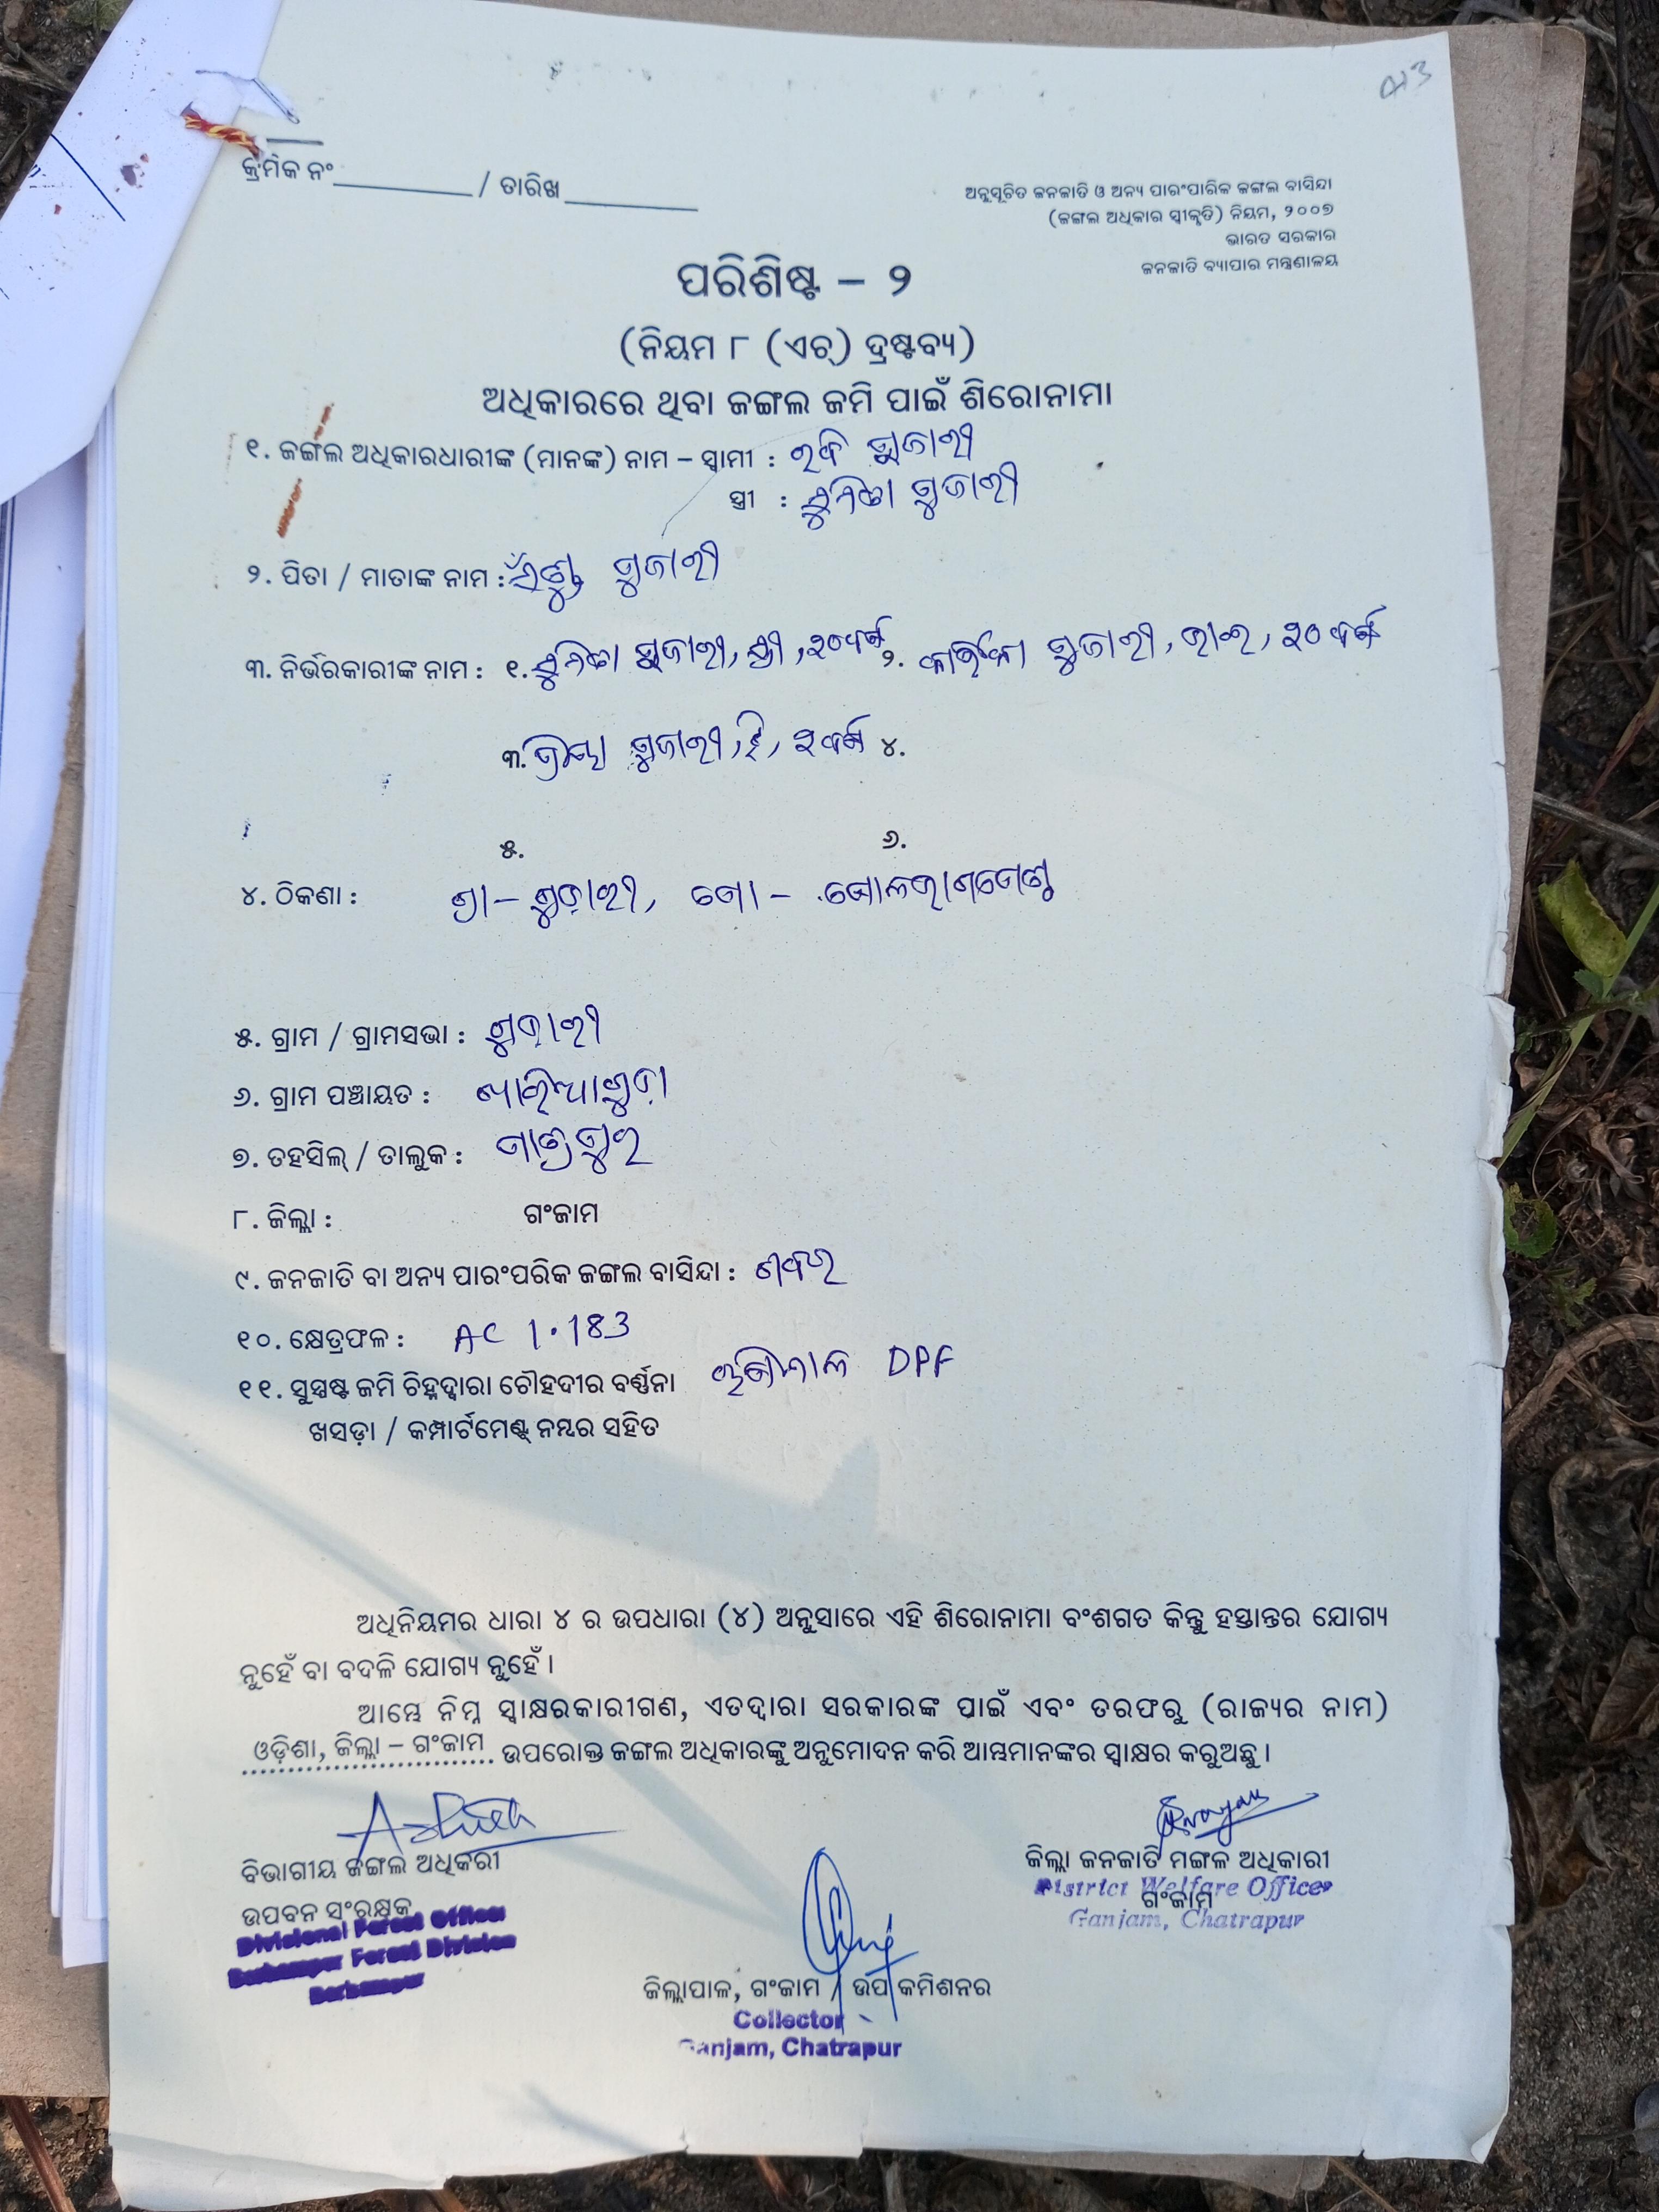 କ୍ରମିକ ନଂ / ତାରିଖ
ଅନୁସୂଚିତ ଜନଜାତି ଓ ଅନ୍ୟ ପାରଂପାରିକ ଜଙ୍ଗଲ ବାସିନ୍ଦା
(ଜଙ୍ଗଲ ଅଧିକାର ସ୍ୱୀକୃତି) ନିୟମ, ୨୦୦୭
ଭାରତ ସରକାର
ଜନଜାତି ବ୍ୟାପାର ମନ୍ତ୍ରଣାଳୟ
ପରିଶିଷ୍ଟ – ୨
(ନିୟମ ୮ (ଏଚ୍) ଦ୍ରଷ୍ଟବ୍ୟ)
ଅଧିକାରରେ ଥିବା ଜଙ୍ଗଲ ଜମି ପାଇଁ ଶିରୋନାମା
୧. ଜଙ୍ଗଲ ଅଧିକାରଧାରୀଙ୍କ (ମାନଙ୍କ) ନାମ – ସ୍ୱାମୀ : ରବି ପୁଜାରୀ
ସ୍ତ୍ରୀ : ସୁନିତା ପୁଜାରୀ
୨. ପିତା / ମାତାଙ୍କ ନାମ : ପୁଜାରୀ
୩. ନିର୍ଭରକାରୀଙ୍କ ନାମ : ୧. ସୁନିତା ପୁଜାରୀ, ସ୍ତ୍ରୀ, ୨୦ବର୍ଷ ୨. ପୁଜାରୀ, ୨୦ ବର୍ଷ
୩. ପୁଜାରୀ, ଝି, ୨ବର୍ଷ ୪.
୫. ୬.
୪. ଠିକଣା : ଗ୍ରା – ଗୁଡ଼ାରୀ, ପୋ –
୫. ଗ୍ରାମ / ଗ୍ରାମସଭା : ଗୁଡ଼ାରୀ
୬. ଗ୍ରାମ ପଞ୍ଚାୟତ :
୭. ତହସିଲ୍ / ତାଲୁକ : ପାତ୍ରପୁର
୮. ଜିଲ୍ଲା : ଗଂଜାମ
୯. ଜନଜାତି ବା ଅନ୍ୟ ପାରଂପରିକ ଜଙ୍ଗଲ ବାସିନ୍ଦା : ଶବର
୧୦. କ୍ଷେତ୍ରଫଳ : AC 1.183
୧୧. ସୁସ୍ପଷ୍ଟ ଜମି ଚିହ୍ନଦ୍ୱାରା ଚୌହଦୀର ବର୍ଣ୍ଣନା DPF
ଖସଡ଼ା / କମ୍ପାର୍ଟମେଣ୍ଟ୍ ନମ୍ବର ସହିତ
ଅଧିନିୟମର ଧାରା ୪ ର ଉପଧାରା (୪) ଅନୁସାରେ ଏହି ଶିରୋନାମା ବଂଶଗତ କିନ୍ତୁ ହସ୍ତାନ୍ତର ଯୋଗ୍ୟ
ନୁହେଁ ବା ବଦଳି ଯୋଗ୍ୟ ନୁହେଁ ।
ଆମ୍ଭେ ନିମ୍ନ ସ୍ୱାକ୍ଷରକାରୀଗଣ, ଏତଦ୍ୱାରା ସରକାରଙ୍କ ପାଇଁ ଏବଂ ତରଫରୁ (ରାଜ୍ୟର ନାମ)
ଓଡ଼ିଶା, ଜିଲ୍ଲା – ଗଂଜାମ ଉପରୋକ୍ତ ଜଙ୍ଗଲ ଅଧିକାରଙ୍କୁ ଅନୁମୋଦନ କରି ଆମ୍ଭମାନଙ୍କର ସ୍ୱାକ୍ଷର କରୁଅଛୁ ।
ବିଭାଗୀୟ ଜଙ୍ଗଲ ଅଧିକାରୀ
ଉପବନ ସଂରକ୍ଷକ
Divisional Forest Officer
Berhampur Forest Division
Berhampur
ଜିଲ୍ଲା ଜନଜାତି ମଙ୍ଗଳ ଅଧିକାରୀ
District Welfare Officer
ଗଂଜାମ
Ganjam, Chatrapur
ଜିଲ୍ଲାପାଳ, ଗଂଜାମ / ଉପ କମିଶନର
Collector
Ganjam, Chatrapur